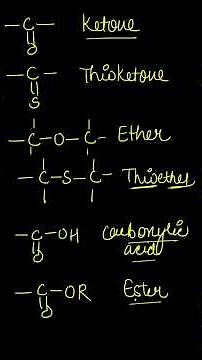 -C- Ketone
O
-C- Thioketone
S
-C-O-C- Ether
-C-S-C- Thioether
-C-OH Carboxylic
O acid
-C-OR Ester
O